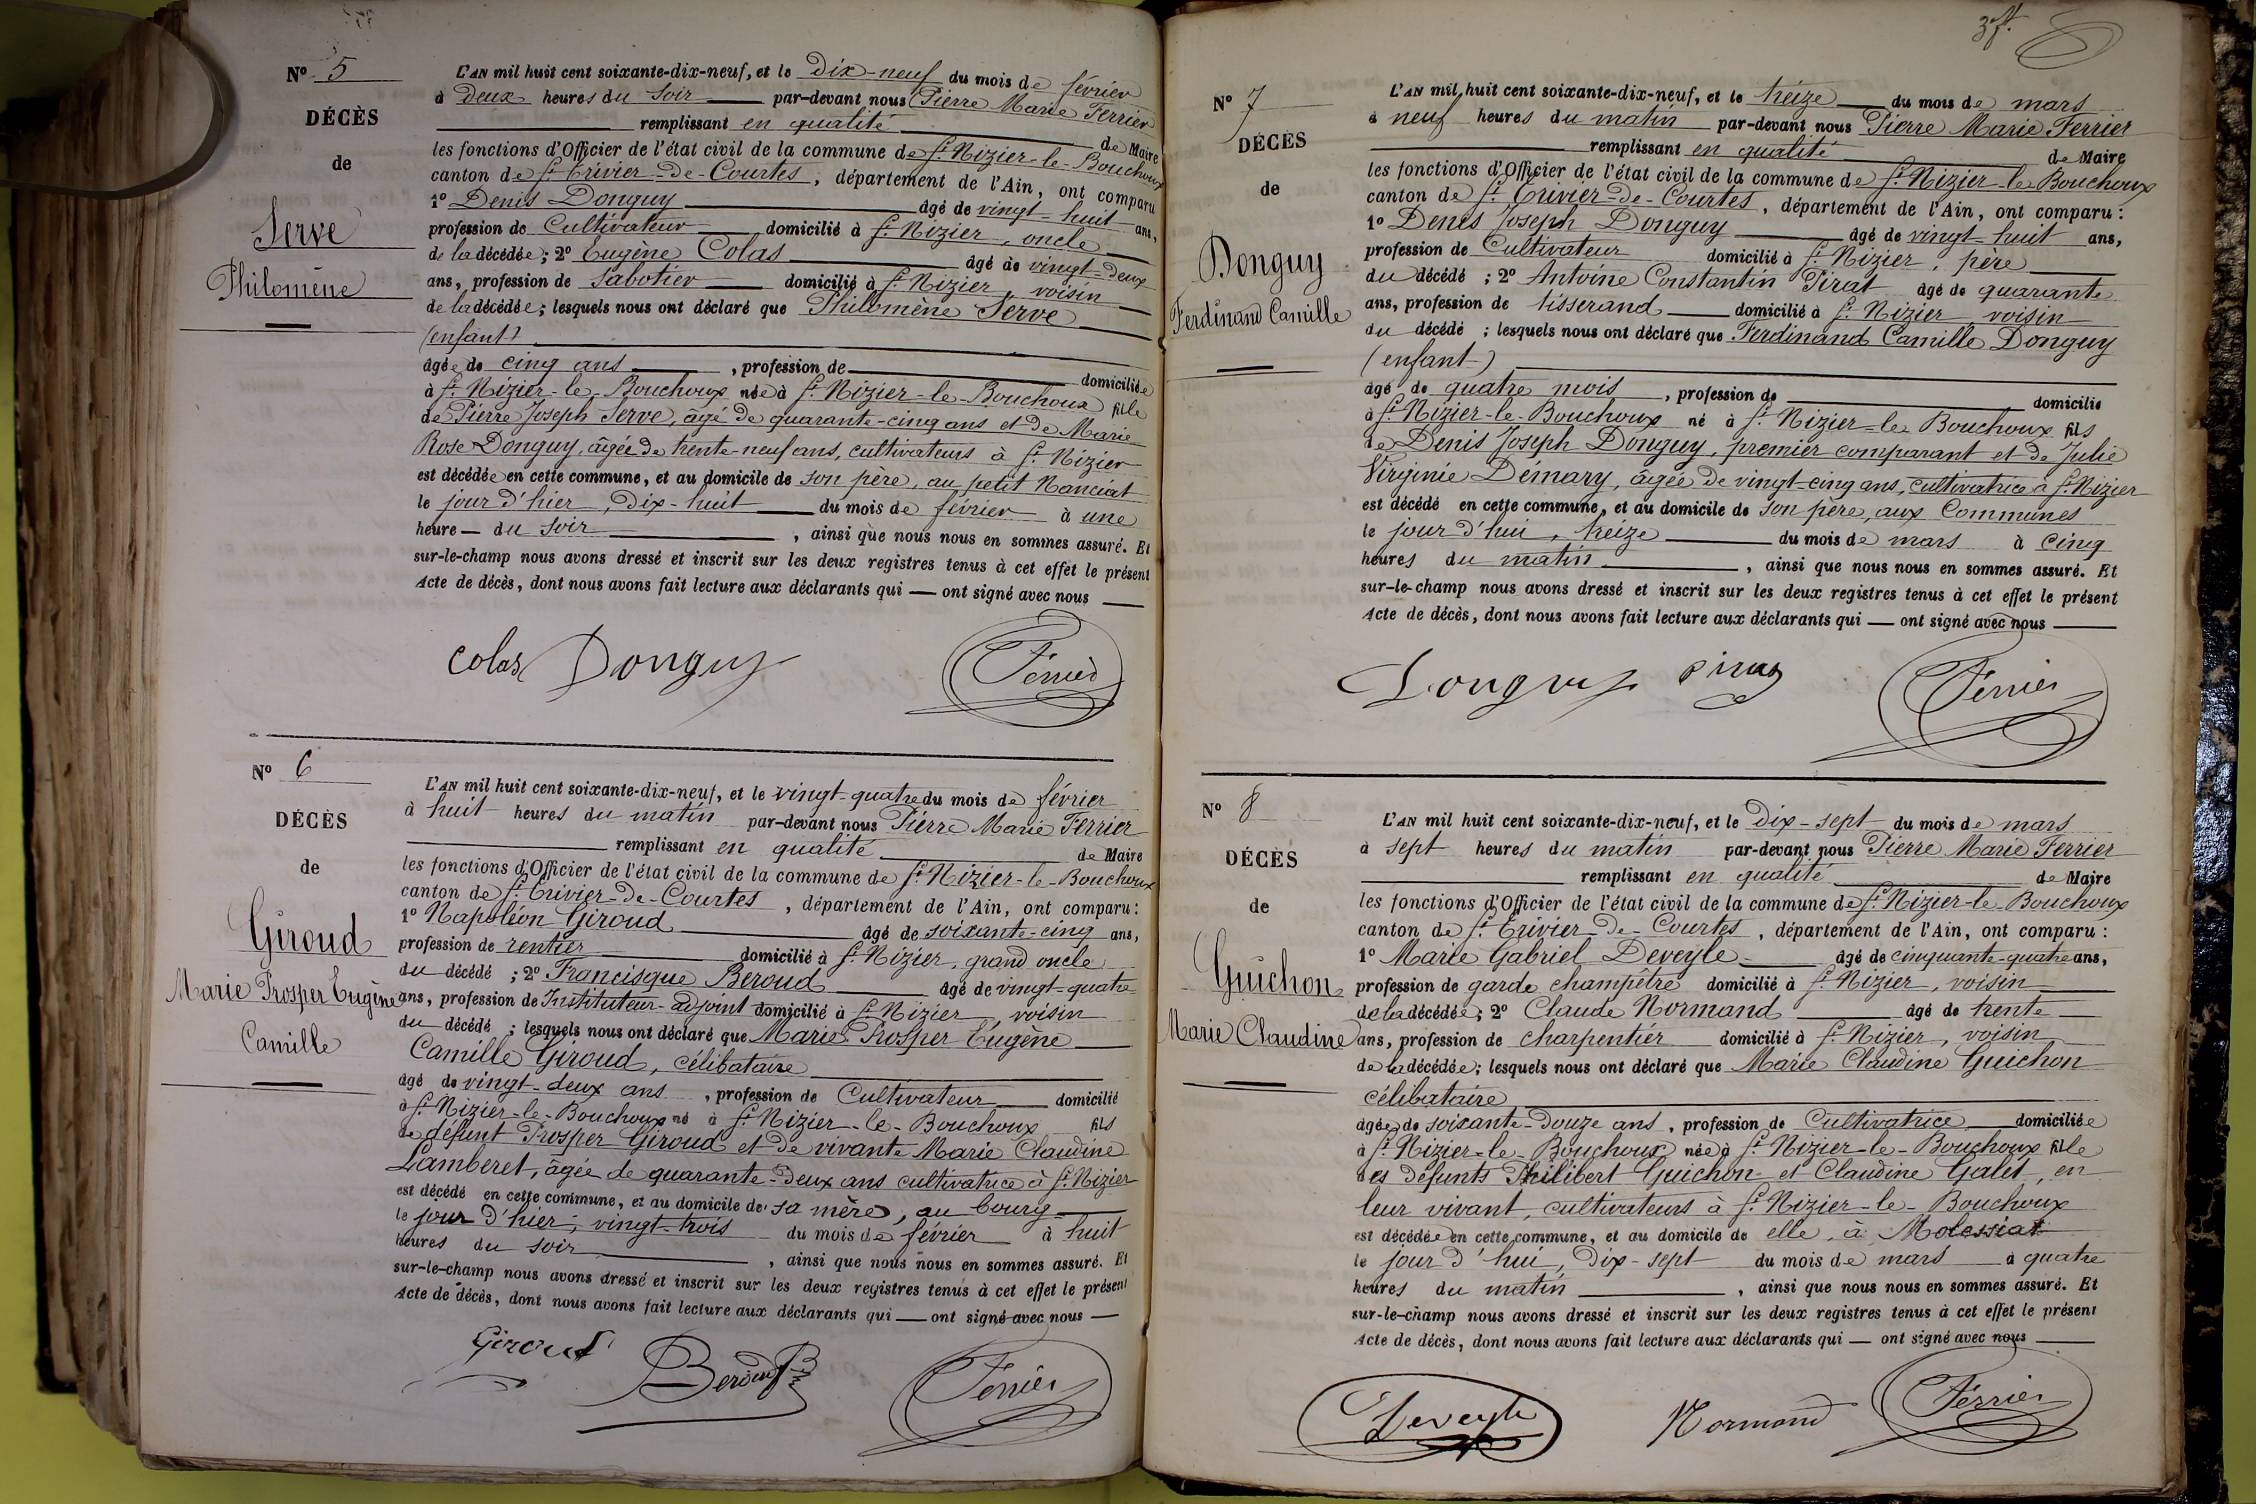 Nº 5
DÉCÈS
de
Serve
Philomène
L'AN mil huit cent soixante-dix-neuf, et le dix-neuf du mois de février
à deux heures du soir par-devant nous Pierre Marie Ferrier
remplissant en qualité de Maire
les fonctions d'Officier de l'état civil de la commune de St Nizier-le-Bouchoux
canton de St Trivier-de-Courtes, département de l'Ain, ont comparu
1º Denis Donguy âgé de vingt-huit ans,
profession de Cultivateur domicilié à St Nizier, oncle
de la décédée; 2º Eugène Colas âgé de vingt-deux
ans, profession de sabotier domicilié à St Nizier, voisin
de la décédée; lesquels nous ont déclaré que Philomène Serve
(enfant)
âgée de cinq ans, profession de domiciliée
à St Nizier-le-Bouchoux née à St Nizier-le-Bouchoux fille
de Pierre Joseph Serve, âgé de quarante-cinq ans et de Marie
Rose Donguy, âgée de trente-neuf ans, cultivateurs à St Nizier
est décédée en cette commune, et au domicile de son père, au petit Nanciat
le jour d'hier, dix-huit du mois de février à une
heure du soir, ainsi que nous nous en sommes assuré. Et
sur-le-champ nous avons dressé et inscrit sur les deux registres tenus à cet effet le présent
Acte de décès, dont nous avons fait lecture aux déclarants qui ont signé avec nous
Colas Donguy Ferrier
Nº 6
DÉCÈS
de
Giroud
Marie Prosper Eugène
Camille
L'AN mil huit cent soixante-dix-neuf, et le vingt-quatre du mois de février
à huit heures du matin par-devant nous Pierre Marie Ferrier
remplissant en qualité de Maire
les fonctions d'Officier de l'état civil de la commune de St Nizier-le-Bouchoux
canton de St Trivier-de-Courtes, département de l'Ain, ont comparu:
1º Napoléon Giroud âgé de soixante-cinq ans,
profession de rentier domicilié à St Nizier, grand oncle
du décédé; 2º Francisque Beroud âgé de vingt-quatre
ans, profession de Instituteur-adjoint domicilié à St Nizier, voisin
du décédé; lesquels nous ont déclaré que Marie Prosper Eugène
Camille Giroud, célibataire
âgé de vingt-deux ans, profession de Cultivateur domicilié
à St Nizier-le-Bouchoux né à St Nizier-le-Bouchoux fils
de défunt Prosper Giroud et de vivante Marie Claudine
Lamberet, âgée de quarante-deux ans cultivatrice à St Nizier
est décédé en cette commune, et au domicile de sa mère, au bourg
le jour d'hier, vingt-trois du mois de février à huit
heures du soir, ainsi que nous nous en sommes assuré. Et
sur-le-champ nous avons dressé et inscrit sur les deux registres tenus à cet effet le présent
Acte de décès, dont nous avons fait lecture aux déclarants qui ont signé avec nous
Giroud Beroud Ferrier
Nº 7
DÉCÈS
de
Donguy
Ferdinand Camille
L'AN mil huit cent soixante-dix-neuf, et le treize du mois de mars
à neuf heures du matin par-devant nous Pierre Marie Ferrier
remplissant en qualité de Maire
les fonctions d'Officier de l'état civil de la commune de St Nizier-le-Bouchoux
canton de St Trivier-de-Courtes, département de l'Ain, ont comparu:
1º Denis Joseph Donguy âgé de vingt-huit ans,
profession de Cultivateur domicilié à St Nizier, père
du décédé; 2º Antoine Constantin Pirat âgé de quarante
ans, profession de tisserand domicilié à St Nizier voisin
du décédé; lesquels nous ont déclaré que Ferdinand Camille Donguy
(enfant)
âgé de quatre mois, profession de domicilié
à St Nizier-le-Bouchoux né à St Nizier-le-Bouchoux fils
de Denis Joseph Donguy, premier comparant et de Julie
Virginie Démary, âgée de vingt-cinq ans, cultivatrice à St Nizier
est décédé en cette commune, et au domicile de son père, aux Communes
le jour d'hui, treize du mois de mars à cinq
heures du matin, ainsi que nous nous en sommes assuré. Et
sur-le-champ nous avons dressé et inscrit sur les deux registres tenus à cet effet le présent
Acte de décès, dont nous avons fait lecture aux déclarants qui ont signé avec nous
Donguy Pirat Ferrier
Nº 8
DÉCÈS
de
Guichon
Marie Claudine
L'AN mil huit cent soixante-dix-neuf, et le dix-sept du mois de mars
à sept heures du matin par-devant nous Pierre Marie Ferrier
remplissant en qualité de Maire
les fonctions d'Officier de l'état civil de la commune de St Nizier-le-Bouchoux
canton de St Trivier-de-Courtes, département de l'Ain, ont comparu:
1º Marie Gabriel Deveyle âgé de cinquante-quatre ans,
profession de garde champêtre domicilié à St Nizier, voisin
de la décédée; 2º Claude Normand âgé de trente
ans, profession de charpentier domicilié à St Nizier, voisin
de la décédée; lesquels nous ont déclaré que Marie Claudine Guichon
célibataire
âgée de soixante-douze ans, profession de Cultivatrice domiciliée
à St Nizier-le-Bouchoux née à St Nizier-le-Bouchoux fille
des défunts Philibert Guichon et Claudine Galet, en
leur vivant, cultivateurs à St Nizier-le-Bouchoux
est décédée en cette commune, et au domicile de elle, à Molessiat
le jour d'hui, dix-sept du mois de mars à quatre
heures du matin, ainsi que nous nous en sommes assuré. Et
sur-le-champ nous avons dressé et inscrit sur les deux registres tenus à cet effet le présent
Acte de décès, dont nous avons fait lecture aux déclarants qui ont signé avec nous
Deveyle Normand Ferrier